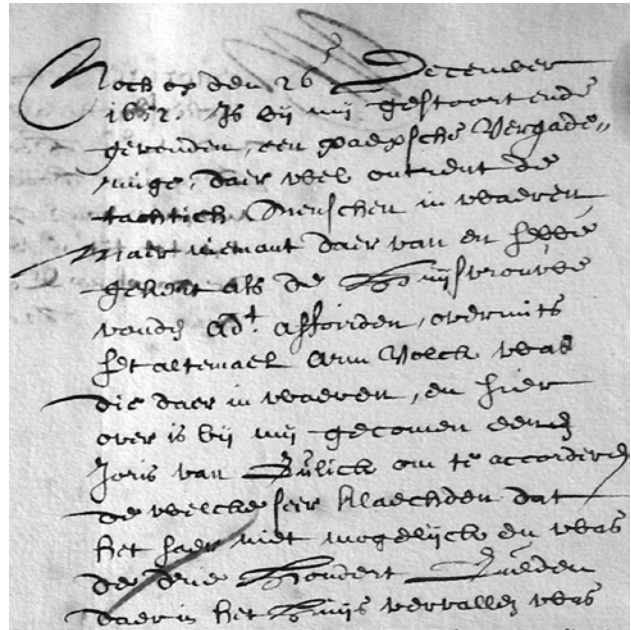 Noch op den 26 December
1652. Is bij mij gestoort ende
gevonden, een paepsche Vergade„
ringe, daer wel ontrent de
tachtich Menschen in waeren
Maer niemant daer van en hebbe
gekent als de Huijsvrouwe
vanden adt. Assoirden, overmits
het altemael Arm Volck was
die daer in waeren, en hier
over is bij mij gecomen eenen
Joris van Gulick om te accorderen
de welcke seer klaechden dat
het haer niet mogelijck en was
de drie Hondert Gulden
daer in het Huijs vervallen was